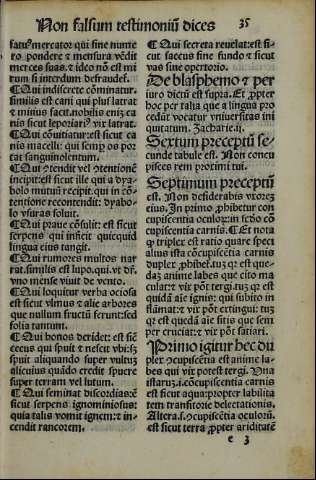 Non falsum testimoniũ dices 35
fatuꝰ mercator qui sine nume
ro pondere ⁊ mensura vẽdit
merces suas. ⁊ ideo nõ est mi
rum si interdum defraudeť.
¶ Qui indiscrete cõminatur.
similis est cani qui plus latrat
⁊ minus facit. nobilis eniȝ ca
nis sicut leporariꝰ nõ latrat.
¶ Qui cõuitiatur: est sicut ca
nis macelli: qui semꝑ os por
tat sanguinolentum.
¶ Qui ꝯtendit vel ꝯtentionẽ
recipit: est sicut ille qui a dya
bolo mutuũ recipit. qui in cõ
tentione recontendit: dyabo
lo vsuras soluit.
¶ Qui praue cõsulit: est sicut
serpens qui inficit quicquid
lingua eius tangit.
¶ Qui rumores multos nar
rat. similis est lupo. qui. vt dr̃.
vno mense viuit de vento.
¶ Qui loquitur verba ociosa
est sicut vlmus ⁊ alie arbores
que nullum fructũ ferunt: sed
folia tantum.
¶ Qui bonos deridet: est siĉ
cecus qui spuit ⁊ nescit vbi: sȝ
spuit aliquando super vultuȝ
alicuius quãdo credit spuere
super terram vel lutum.
¶ Qui seminat discordias: ẽ
sicut serpens ignominiosus:
quia talis vomit ignem: ⁊ in
cendit rancorem.
¶ Qui secreta reuelat: est si
cut saccus sine fundo ⁊ sicut
vas sine opertorio.
De blasphemo ⁊ per
iuro dictũ est supra. Et ꝓpter
hoc per talia que a lingua pro
cedũt vocatur vniuersitas ini
quitatum. Zacharie. ij.
Sextum preceptũ se
cunde tabule est. Non concu
pisces rem proximi tui.
Septimum preceptũ
est. Non desiderabis vxoreȝ
eius. In primo ꝓhibetur con
cupiscentia oculoꝝ: in scďo cõ
cupiscentia carnis. ¶ Et nota
ꝙ triplex est ratio quare speci
alius ista cõcupiscẽtia carnis
dupleẍ ꝓhibeť. tuȝ qꝛ est que
daȝ anime labes que cito ma
culat: ⁊ vix põt tergi. tuȝ qꝛ est
quidã aĩe ignis: qui subito in
flãmat: ⁊ vix põt extingui: tuȝ
qꝛ est quedã aĩe sitis que sem
per cruciat: ⁊ vix põt satiari.
Primo igitur hec du
plex ꝯcupiscẽtia est anime la
bes qui vix potest tergi. Vna
istaruȝ. i. cõcupiscentia carnis
est sicut aqua: propter labilita
tem transitorie delectationis.
Altera. s. ꝯcupiscẽtia oculorũ.
est sicut terra ꝓpter ariditatẽ
e 3